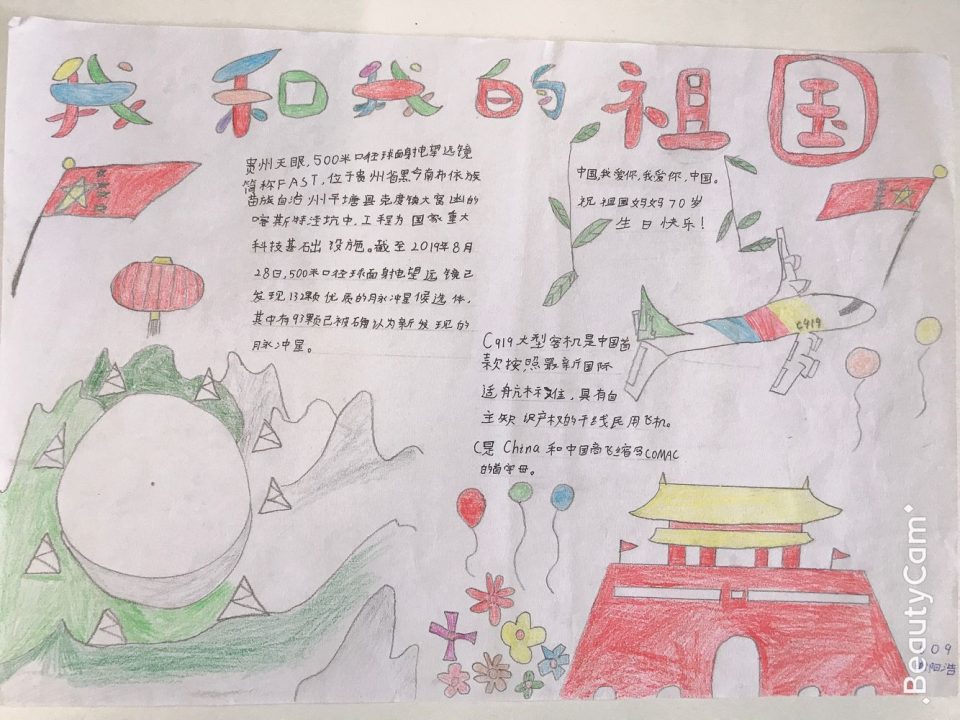 我和我的祖国
贵州天眼,500米口径球面射电望远镜
简称FAST,位于贵州省黔南布依族
苗族自治州平塘县克度镇大窝凼的
喀斯特洼坑中,工程为国家重大
科技基础设施。截至2019年8月
28日,500米口径球面射电望远镜已
发现132颗优质的脉冲星候选体,
其中有93颗已被确认为新发现的
脉冲星。
中国,我爱你,我爱你,中国。
祝祖国妈妈70岁
生日快乐!
C919
C919大型客机是中国首
款按照最新国际
适航标准,具有自
主知识产权的干线民用飞机。
C是China和中国商飞缩写COMAC
的首字母。
09
阳浩
·BeautyCam·